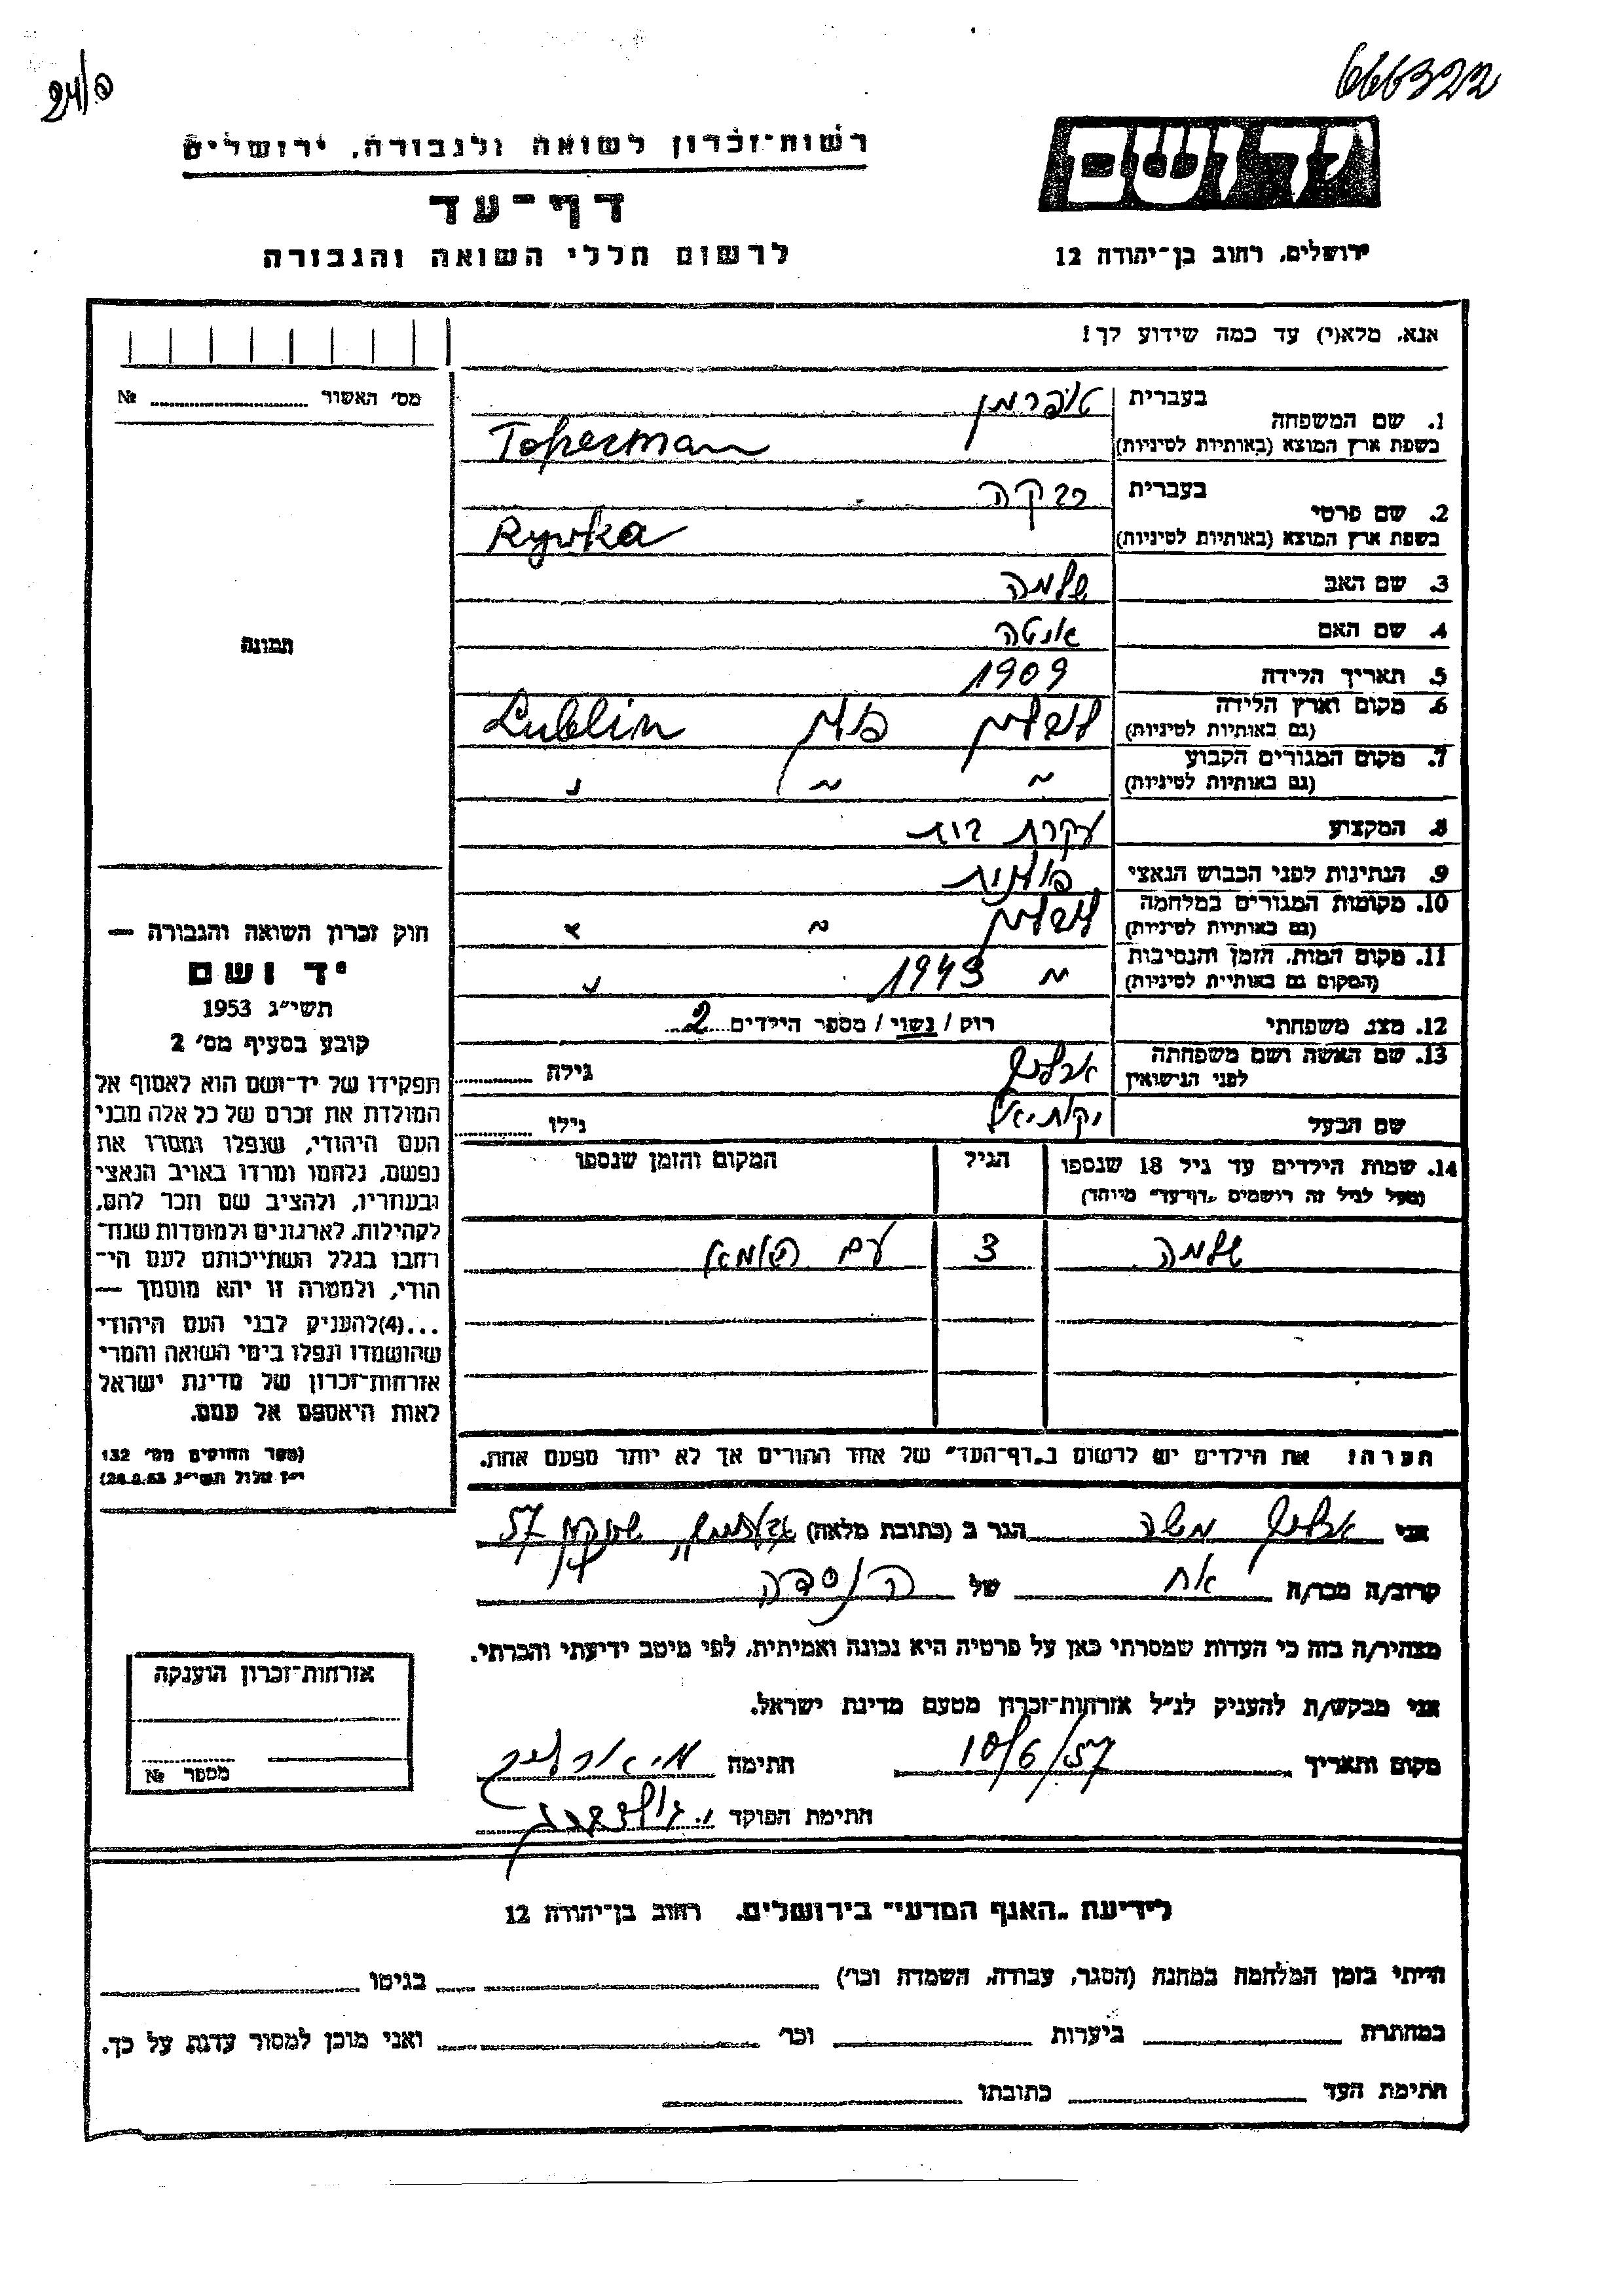 666322
24/ס
יד ושם
ירושלים, רחוב בן־יהודה 12
רשות־זכרון לשואה ולגבורה, ירושלים
דף־עד
לרשום חללי השואה והגבורה
אנא, מלא(י) עד כמה שידוע לך!
מס׳ האשור № 
תמונה
1. שם המשפחה בעברית טופרמן
בשפת ארץ המוצא (באותיות לטיניות) Toperman
2. שם פרטי בעברית רבקה
בשפת ארץ המוצא (באותיות לטיניות) Rywka
3. שם האב שלמה
4. שם האם
5. תאריך הלידה 1909
6. מקום וארץ הלידה לובלין פולין Lublin
(גם באותיות לטיניות)
7. מקום המגורים הקבוע
(גם באותיות לטיניות) " " "
8. המקצוע עקרת בית
9. הנתינות לפני הכבוש הנאצי פולנית
10. מקומות המגורים במלחמה לובלין " "
(גם באותיות לטיניות)
11. מקום המות, הזמן והנסיבות " 1943 "
(המקום גם באותיית לטיניות)
12. מצב משפחתי רוק / נשוי / מספר הילדים 2
13. שם האשה ושם משפחתה ארליך גילה
לפני הנישואין
שם הבעל יקותיאל גילו
14. שמות הילדים עד גיל 18 שנספו הגיל המקום והזמן שנספו
(מעל לגיל זה רושמים „דף־עד״ מיוחד)
שלמה 3 עם האמא
הערה: את הילדים יש לרשום ב„דף־העד״ של אחד ההורים אך לא יותר מפעם אחת.
חוק זכרון השואה והגבורה —
יד ושם
תשי״ג 1953
קובע בסעיף מס׳ 2
תפקידו של יד־ושם הוא לאסוף אל
המולדת את זכרם של כל אלה מבני
העם היהודי, שנפלו ומסרו את
נפשם, נלחמו ומרדו באויב הנאצי
ובעוזריו, ולהציב שם וזכר להם,
לקהילות, לארגונים ולמוסדות שנח־
רבו בגלל השתייכותם לעם הי־
הודי, ולמטרה זו יהא מוסמך —
...(4)להעניק לבני העם היהודי
שהושמדו ונפלו בימי השואה והמרי
אזרחות־זכרון של מדינת ישראל
לאות היאספם אל עמם.
(ספר החוקים מס׳ 132
י״ז אלול תשי״ג 28.8.53)
אני ארליך משה הגר ב (כתובת מלאה) 57
קרוב/ה מכר/ה אח של הנספה
מצהיר/ה בזה כי העדות שמסרתי כאן על פרטיה היא נכונה ואמיתית, לפי מיטב ידיעתי והכרתי.
אני מבקש/ת להעניק לנ״ל אזרחות־זכרון מטעם מדינת ישראל.
מקום ותאריך 10/6/57 חתימה מ. ארליך
חתימת הפוקד י. גולדברג
אזרחות־זכרון הוענקה
מספר №
לידיעת „האנף המדעי״ בירושלים, רחוב בן־יהודה 12
הייתי בזמן המלחמה במחנה (הסגר, עבודה, השמדה וכר׳) בגיטו
במחתרת ביערות וכר׳ ואני מוכן למסור עדות על כך.
חתימת העד כתובתו